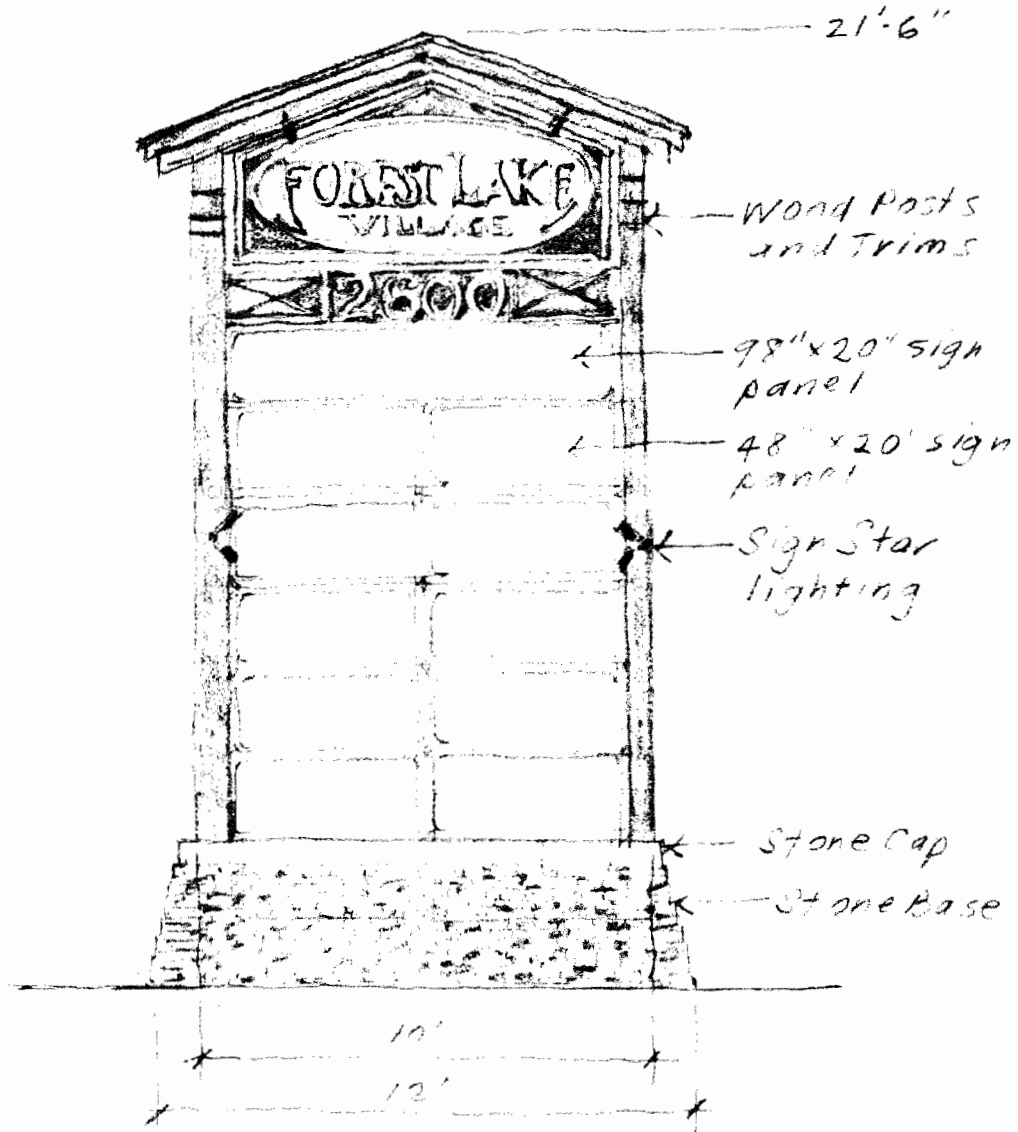 21'-6"
FOREST LAKE
VILLAGE
2600
Wood Posts
and Trims
98"x20" sign
panel
48" x20' sign
panel
Sign Star
lighting
Stone Cap
Stone Base
10'
12'